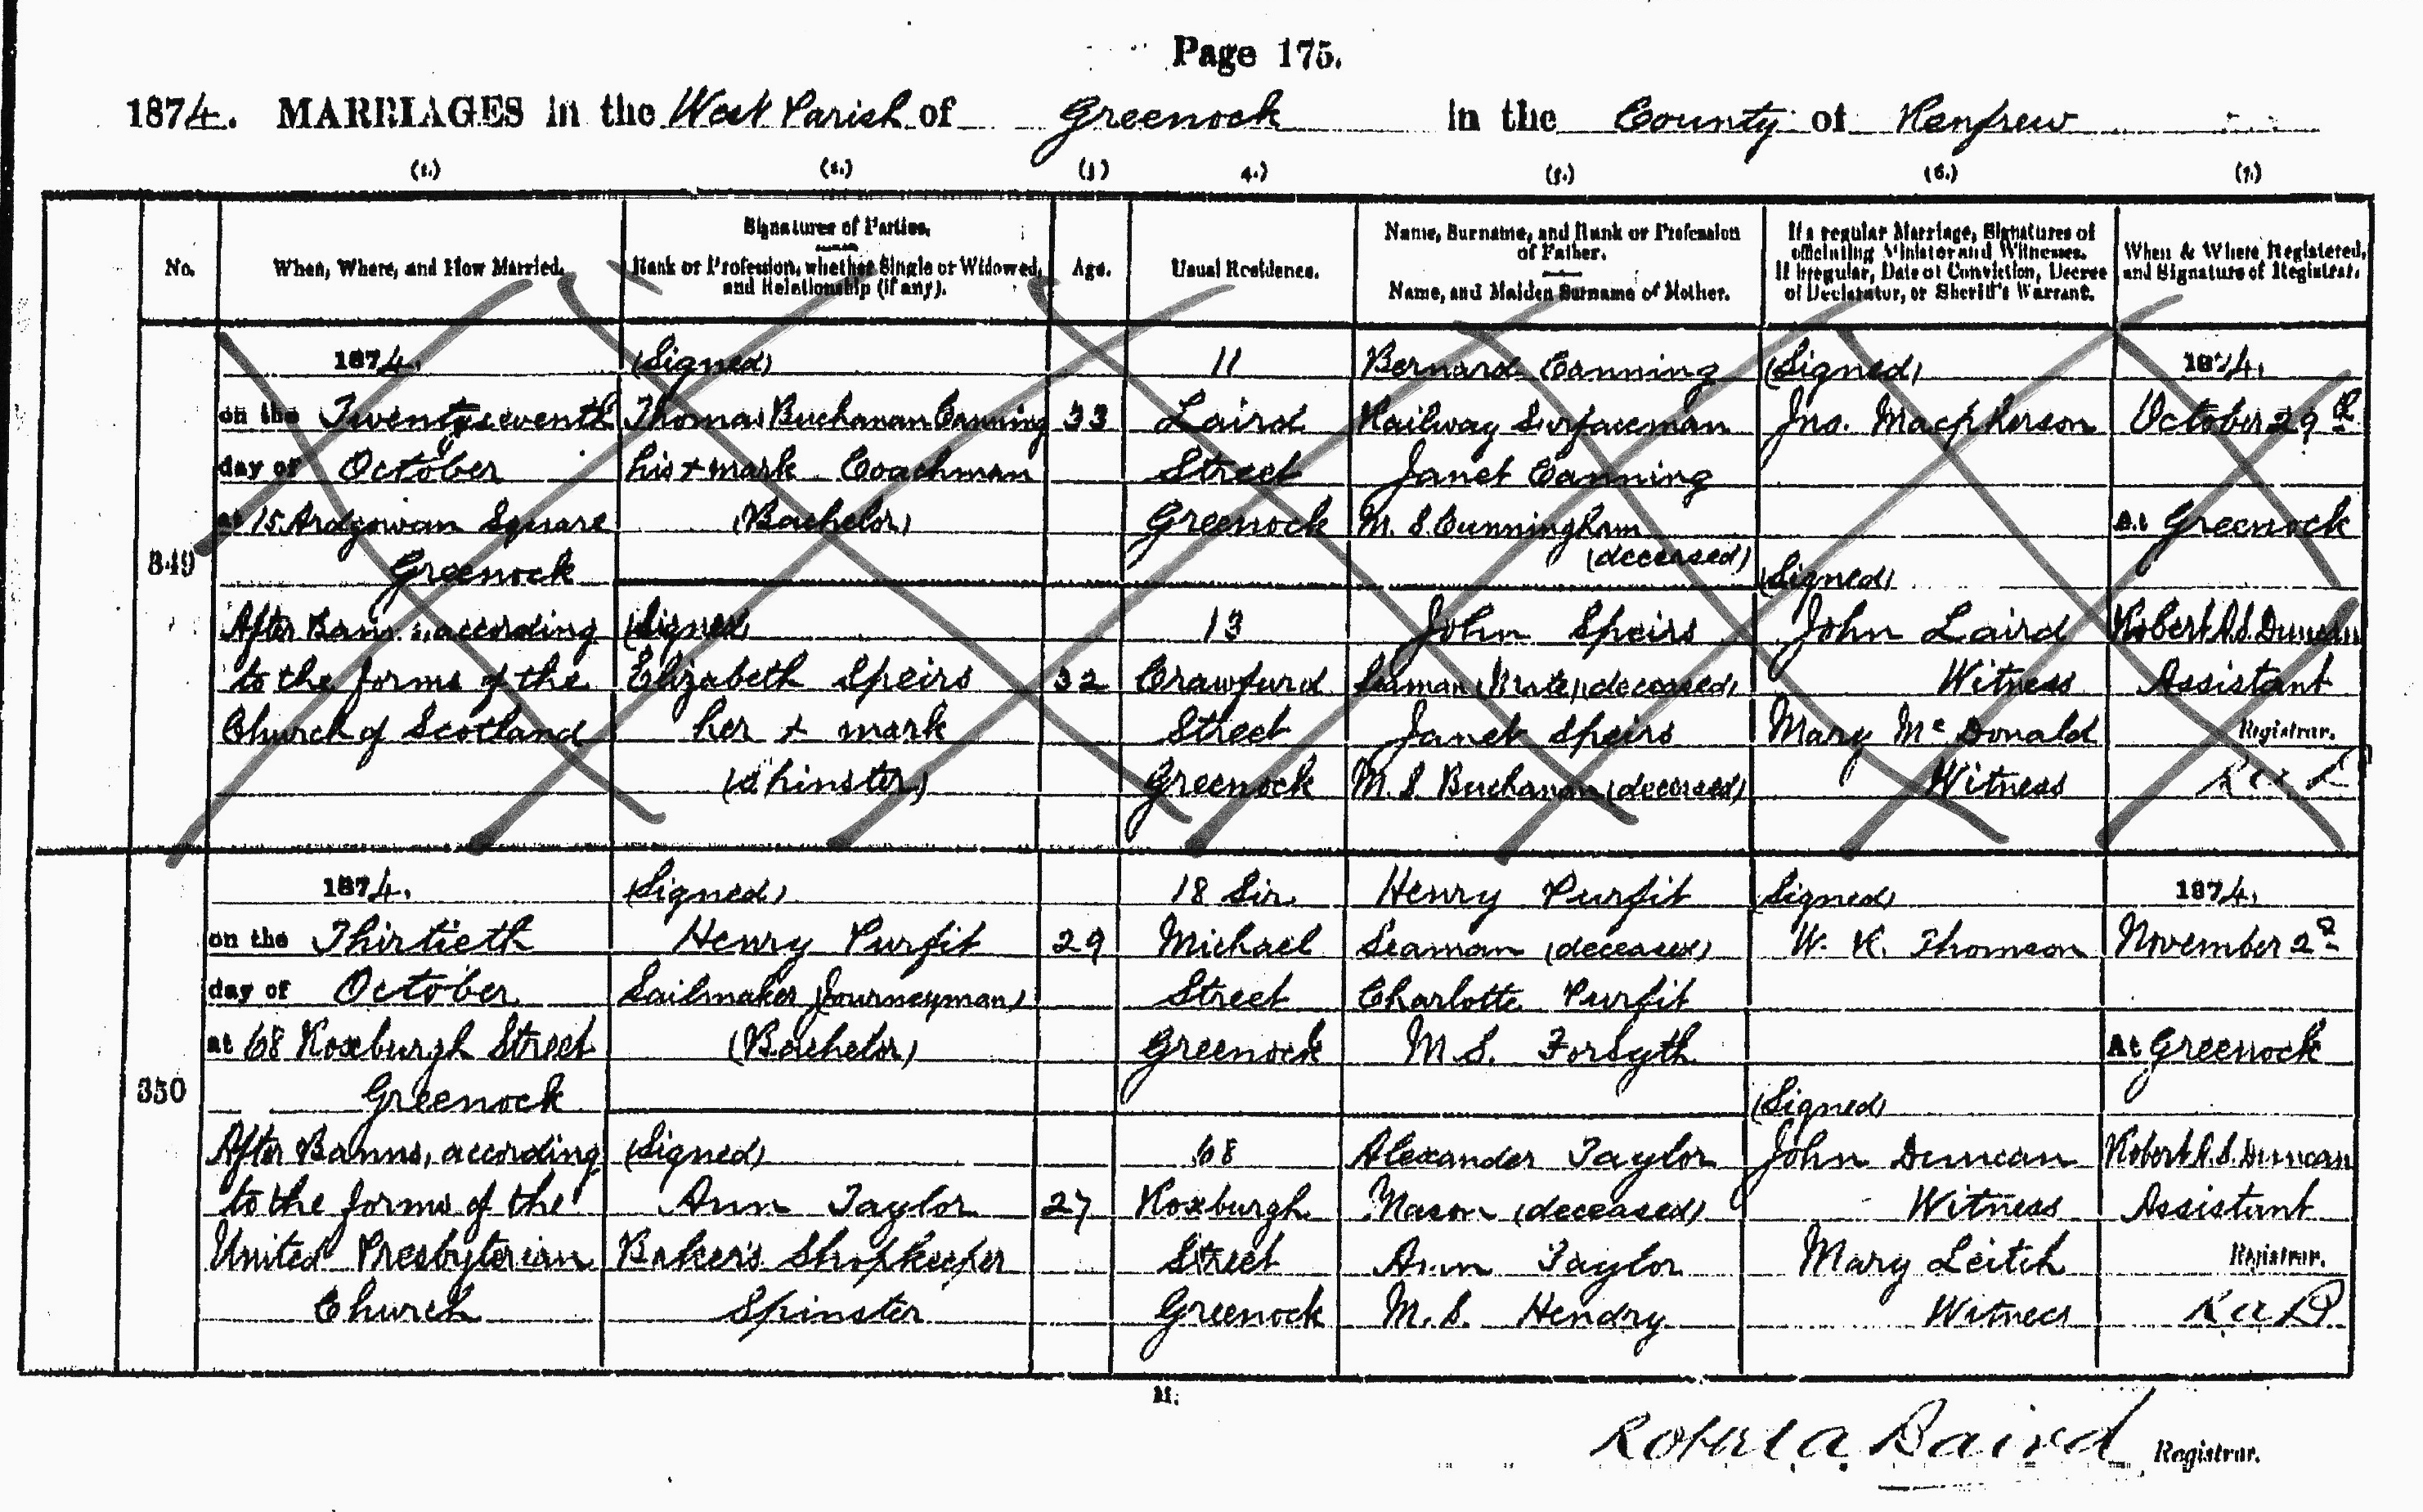 Page 175.
1874. MARRIAGES in the West Parish of Greenock in the County of Renfrew
(1.) (2.) (3) 4.) (5.) (6.) (7.)
No.
When, Where, and How Married.
Signatures of Parties.
Rank or Profession, whether Single or Widowed,
and Relationship (if any).
Age.
Usual Residence.
Name, Surname, and Rank or Profession
of Father.
Name, and Maiden Surname of Mother.
If a regular Marriage, Signatures of
officiating Minister and Witnesses.
If irregular, Date of Conviction, Decree
of Declarator, or Sheriff's Warrant.
When & Where Registered,
and Signature of Registrar.
349
1874.
on the Twenty seventh
day of October
at 15 Ardgowan Square
Greenock
After Banns, according
to the forms of the
Church of Scotland
(Signed)
Thomas Buchanan Canning
his x mark Coachman
(Bachelor)
(Signed)
Elizabeth Speirs
her x mark
(Spinster)
33
32
11
Laird
Street
Greenock
13
Crawfurd
Street
Greenock
Bernard Canning
Railway Surfaceman
Janet Canning
M. S. Cunningham
(deceased)
John Speirs
Seaman (deceased)
Janet Speirs
M. S. Buchanan (deceased)
(Signed)
Jno. Macpherson
(Signed)
John Laird
Witness
Mary McDonald
Witness
1874.
October 29th
At Greenock
Robert A. S. Duncan
Assistant
Registrar.
350
1874.
on the Thirtieth
day of October
at 68 Roxburgh Street
Greenock
After Banns, according
to the forms of the
United Presbyterian
Church
(Signed)
Henry Purfit
Sailmaker (Journeyman)
(Bachelor)
(Signed)
Ann Taylor
Baker's Shopkeeper
Spinster
29
27
18 Sir
Michael
Street
Greenock
68
Roxburgh
Street
Greenock
Henry Purfit
Seaman (deceased)
Charlotte Purfit
M. S. Forsyth
Alexander Taylor
Mason (deceased)
Ann Taylor
M. S. Hendry
(Signed)
W. K. Thomson
(Signed)
John Duncan
Witness
Mary Leitch
Witness
1874.
November 2d
At Greenock
Robert A. S. Duncan
Assistant
Registrar.
R a B
M.
Robert a. Baird Registrar.